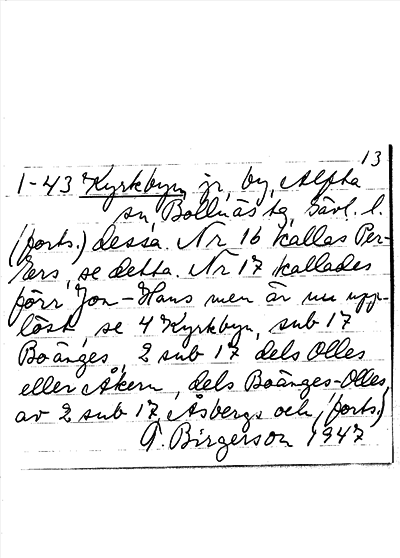 13
1-43 Kyrkbyn, jr, by, Alfta
sn, Bollnäs tg, Gävl. l.
(forts.) dessa. Nr 16 kallas Per-
Lars, se detta. Nr 17 kallades
förr Jon-Hans men är nu upp-
löst, se 4 Kyrkbyn, sub 17
Boänges, 2 sub 17 dels Olles
eller Åkern, dels Boänges-Olles,
av 2 sub 17 Åsbergs och (forts.)
G. Birgerson 1947